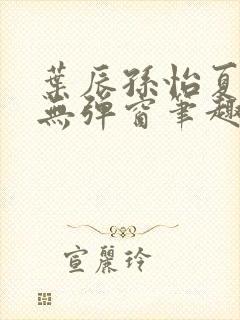 葉辰孫怡夏
無彈窗筆趣
宣麗玲